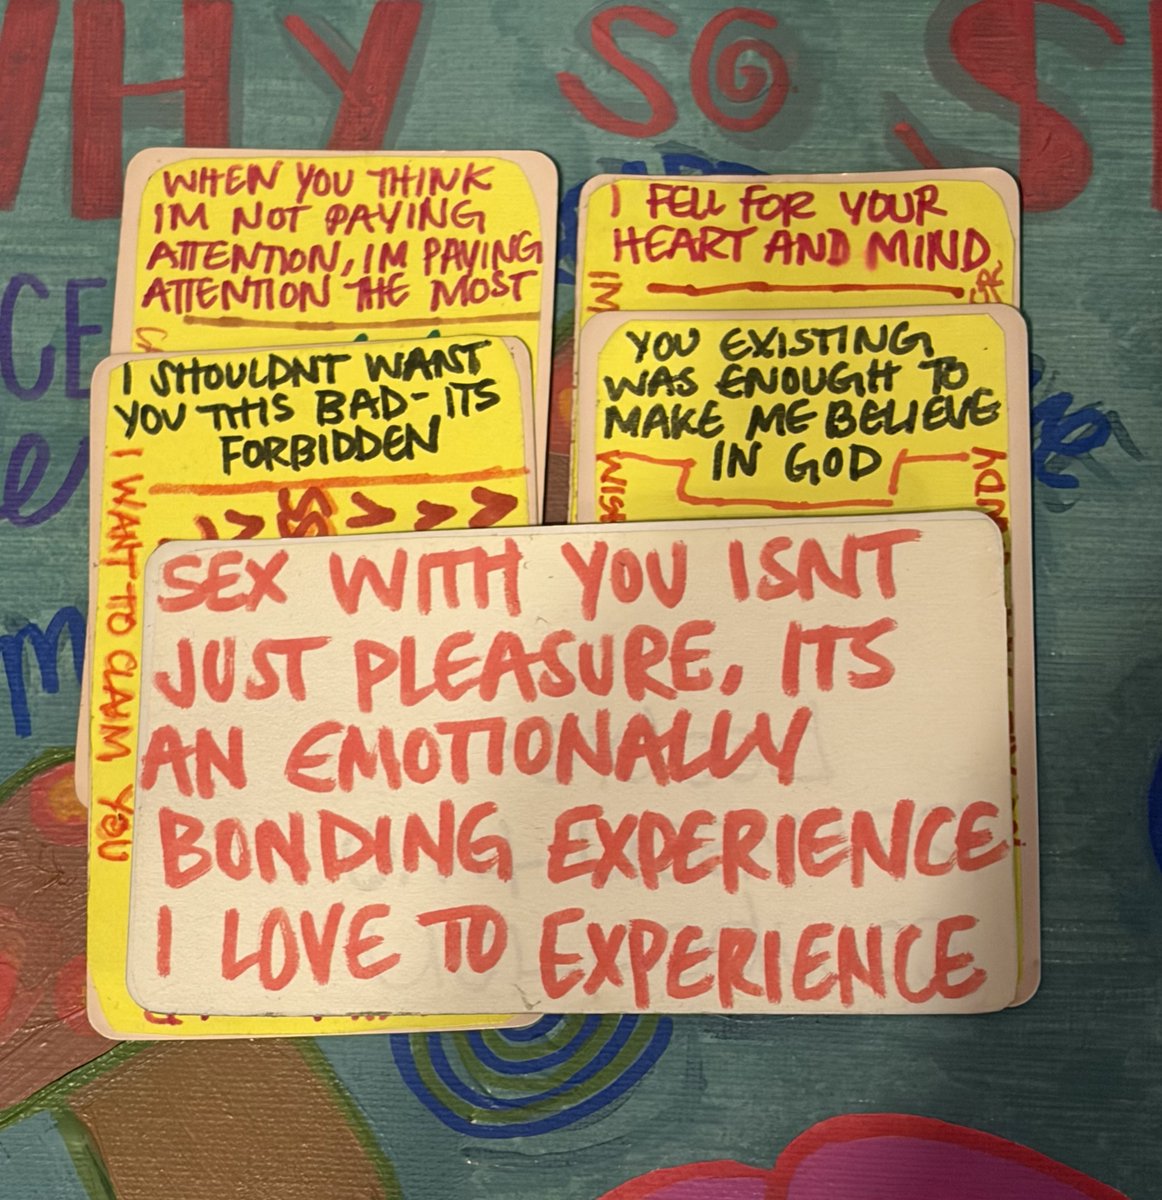 WHY SO S
CE
WHEN YOU THINK
IM NOT PAYING
ATTENTION, IM PAYING
ATTENTION THE MOST
I FELL FOR YOUR
HEART AND MIND
IM
I SHOULDNT WANT
YOU THIS BAD- ITS
FORBIDDEN
I WANT TO CLAIM YOU
YOU EXISTING
WAS ENOUGH TO
MAKE ME BELIEVE
IN GOD
SEX WITH YOU ISNT
JUST PLEASURE, ITS
AN EMOTIONALLY
BONDING EXPERIENCE
I LOVE TO EXPERIENCE